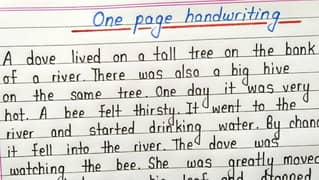 One page handwriting
A dove lived on a tall tree on the bank
of a river. There was also a big hive
on the same tree. One day it was very
hot. A bee felt thirsty. It went to the
river and started drinking water. By chanc
it fell into the river. The dove was
watching the bee. She was greatly moved
leaf and dropped